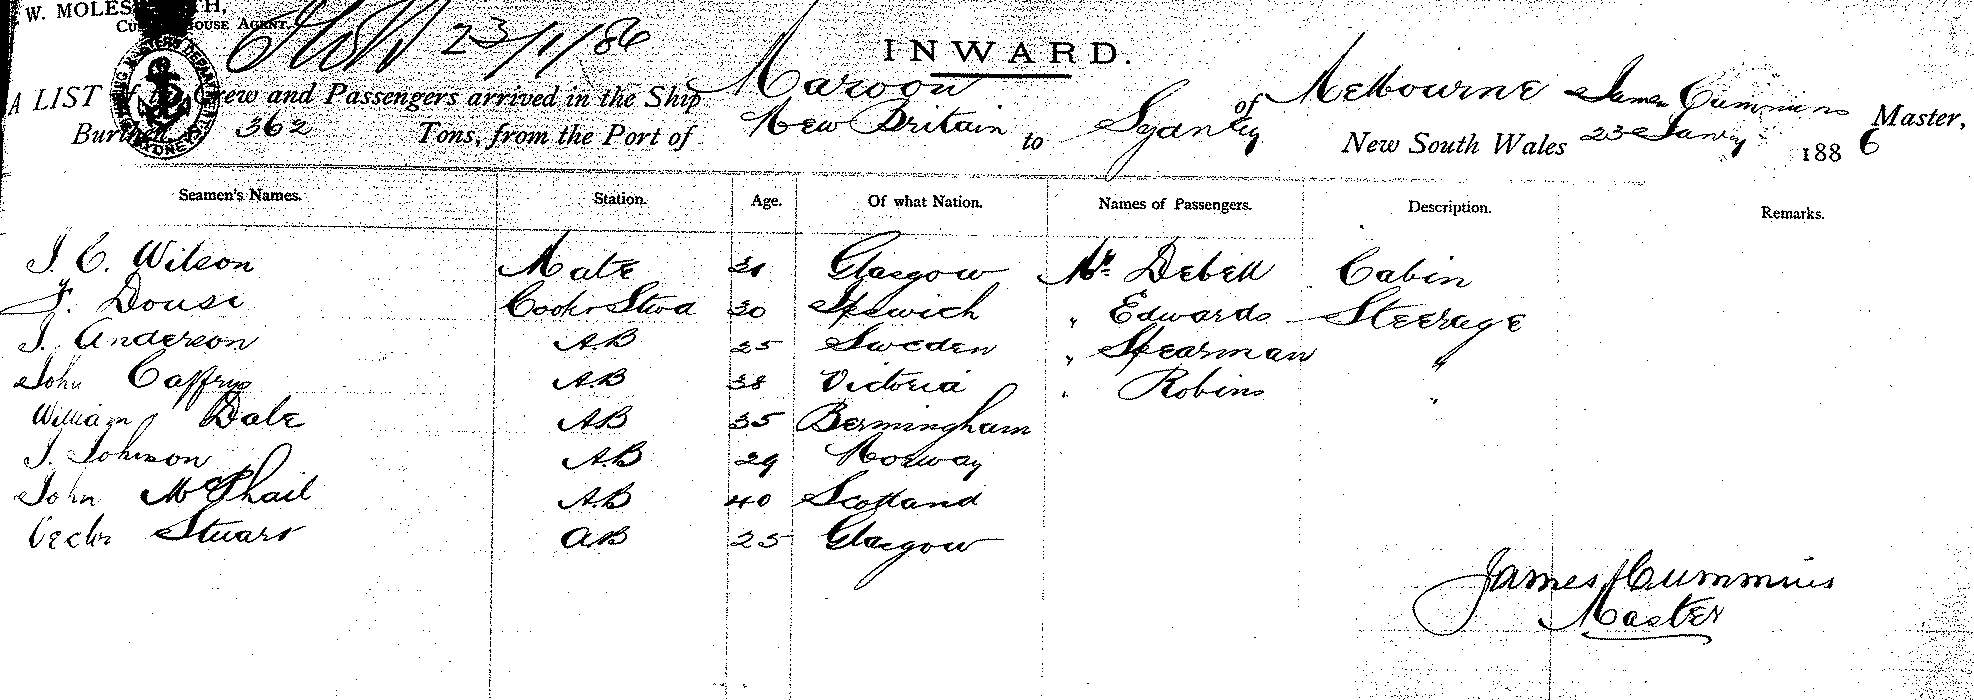 W. MOLESWORTH,
CUSTOM HOUSE AGENT.
23/1/86
INWARD.
A LIST of the Crew and Passengers arrived in the Ship Maroon of Melbourne James Cummins Master,
Burthen 362 Tons, from the Port of New Britain to Sydney New South Wales 23d Janry 1886
Seamen's Names. Station. Age. Of what Nation. Names of Passengers. Description. Remarks.
J. C. Wilson Mate Glasgow Mr. Debell Cabin
J. Douse Cook & Stwd 30 Ipswich " Edwards Steerage
J. Anderson AB 25 Sweden " Spearman "
John Caffrey AB 38 Victoria " Robins "
William Dale AB 35 Bermingham
J. Johnson AB 29 Norway
John McPhail AB 40 Scotland
Stuart AB 25 Glasgow
James Cummins
Master